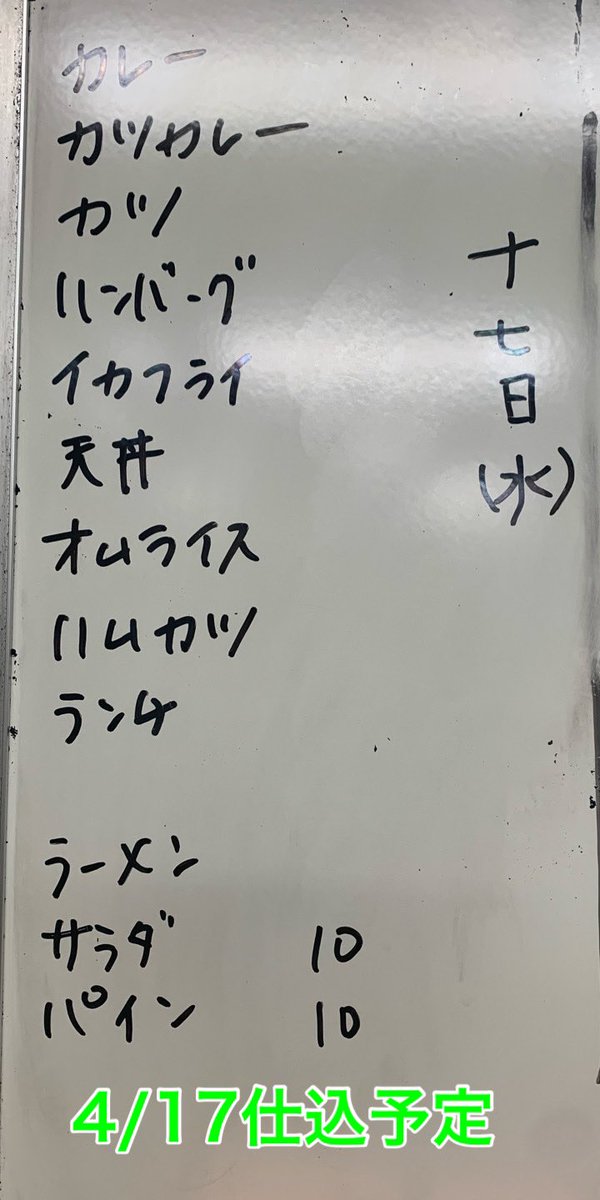 カレー
カツカレー
カツ
ハンバーグ
イカフライ
天丼
オムライス
ハムカツ
ランチ
ラーメン
サラダ 10
パイン 10
十七日(水)
4/17仕込予定